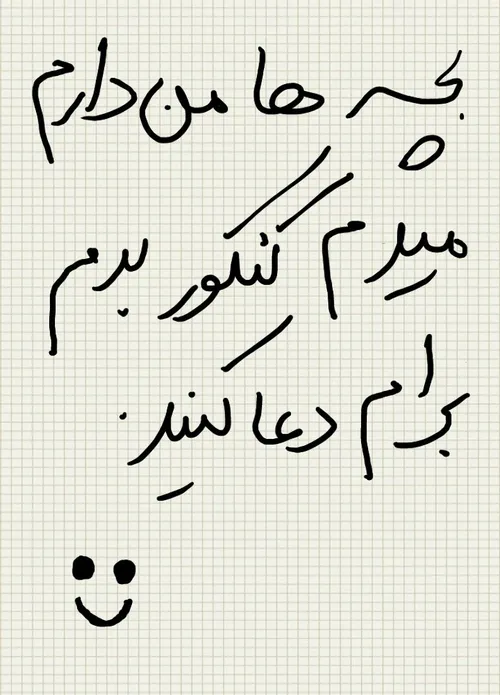 بچه ها من دارم
میرم کنکور بدم
برام دعا کنید.